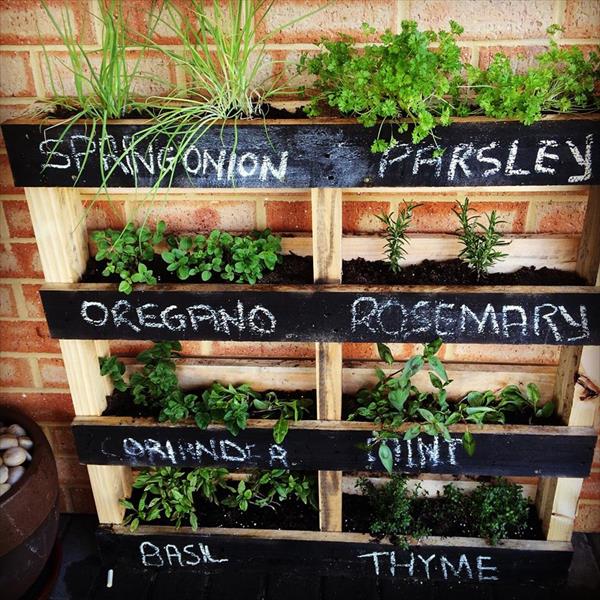 SPRING ONION PARSLEY
OREGANO ROSEMARY
CORIANDER MINT
BASIL THYME